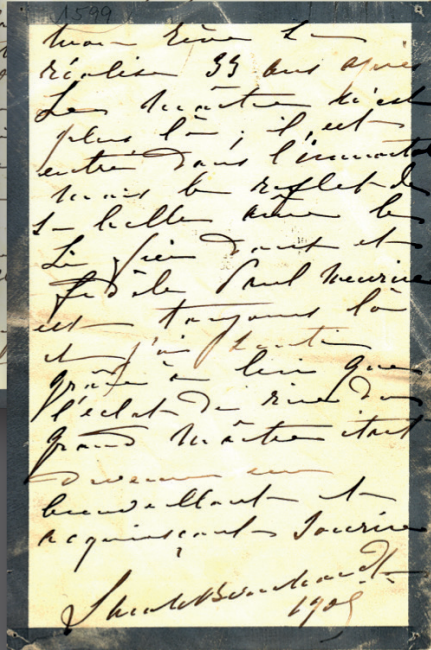 1599
mon rêve se
réalise 33 ans après
Le maître n'est
plus là ; il est
entré dans l'immortal
mais le reflet de
sa belle âme le
si fier doux et
fidèle Paul Meurice
est toujours là
et j'ai senti
grâce à lui que
l'éclat de rire du
grand maître était
devenu un
bienveillant et
acquiesçant sourire
Sarah Bernhardt
1905